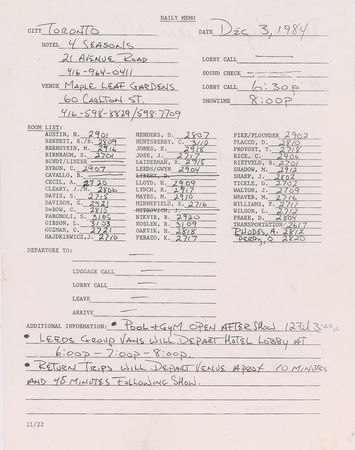 DAILY MEMO
CITY TORONTO DATE DEC 3, 1984
HOTEL 4 SEASONS
21 AVENUE ROAD LOBBY CALL
416-964-0411 SOUND CHECK
VENUE MAPLE LEAF GARDENS LOBBY CALL 6:30P
60 CARLTON ST. SHOWTIME 8:00P
416-598-8829/598-7709
ROOM LIST:
AUSTIN, H. 2901 HENDERS, D. 2807 PIKE/FLOUNDER 2902
BENNETT, K/B. 2809 HUNTSBERRY, C. 3110 PLACCO, D. 2810
BERNSTEIN, M. 2916 JONES, E. 2918 PROVOST, T. 2718
BIRNBAUM, S. 2701 JOSE, J. 2717 RICE, C. 2906
BUNDT/LINZER LAIDERMAN, E. 2715 RIETVELD, E. 2701
BYRON, C. 2907 LEEDS/GWYN 2904 SHADOW, M. 2912
CAVALLO, B. SHARP, J. 2802
CECIL, A. 2720 LLOYD, H. 2909 TICKLE, D. 2702
CLEARY, J/M. 2806 LYNCH, R. 2917 WALTON, M. 2709
DAVIS, S. 2715 MAYES, M. 2910 WEAVER, M. 2716
DAVISON, G. 2921 MINNEFIELD, E. 2716 WILLIAMS, F. 2711
DeBOW, C. 2815 WILSON, L. 2712
FARGNOLI, S. 3105 NIKVIR, B. 2920 PEAKE, D. 2809
GIBSON, L. 3103 NOSLEN, R. 3109 TRANSPORTATION 2617
GUZMAN, C. 2721 OAKVIK, H. 2818 RHODES, A. 2812
HAJDKIEWICZ, J. 2710 PERAZO, K. 2717 PERRY, Q 2820
DEPARTURE TO:
LUGGAGE CALL
LOBBY CALL
LEAVE
ARRIVE
ADDITIONAL INFORMATION: • POOL + GYM OPEN AFTER SHOW 12 TIL 3:00A
• LEEDS GROUP VANS WILL DEPART HOTEL LOBBY AT
6:00P - 7:00P - 8:00P.
• RETURN TRIPS WILL DEPART VENUE APROX. 10 MINUTES
AND 45 MINUTES FOLLOWING SHOW.
11/22